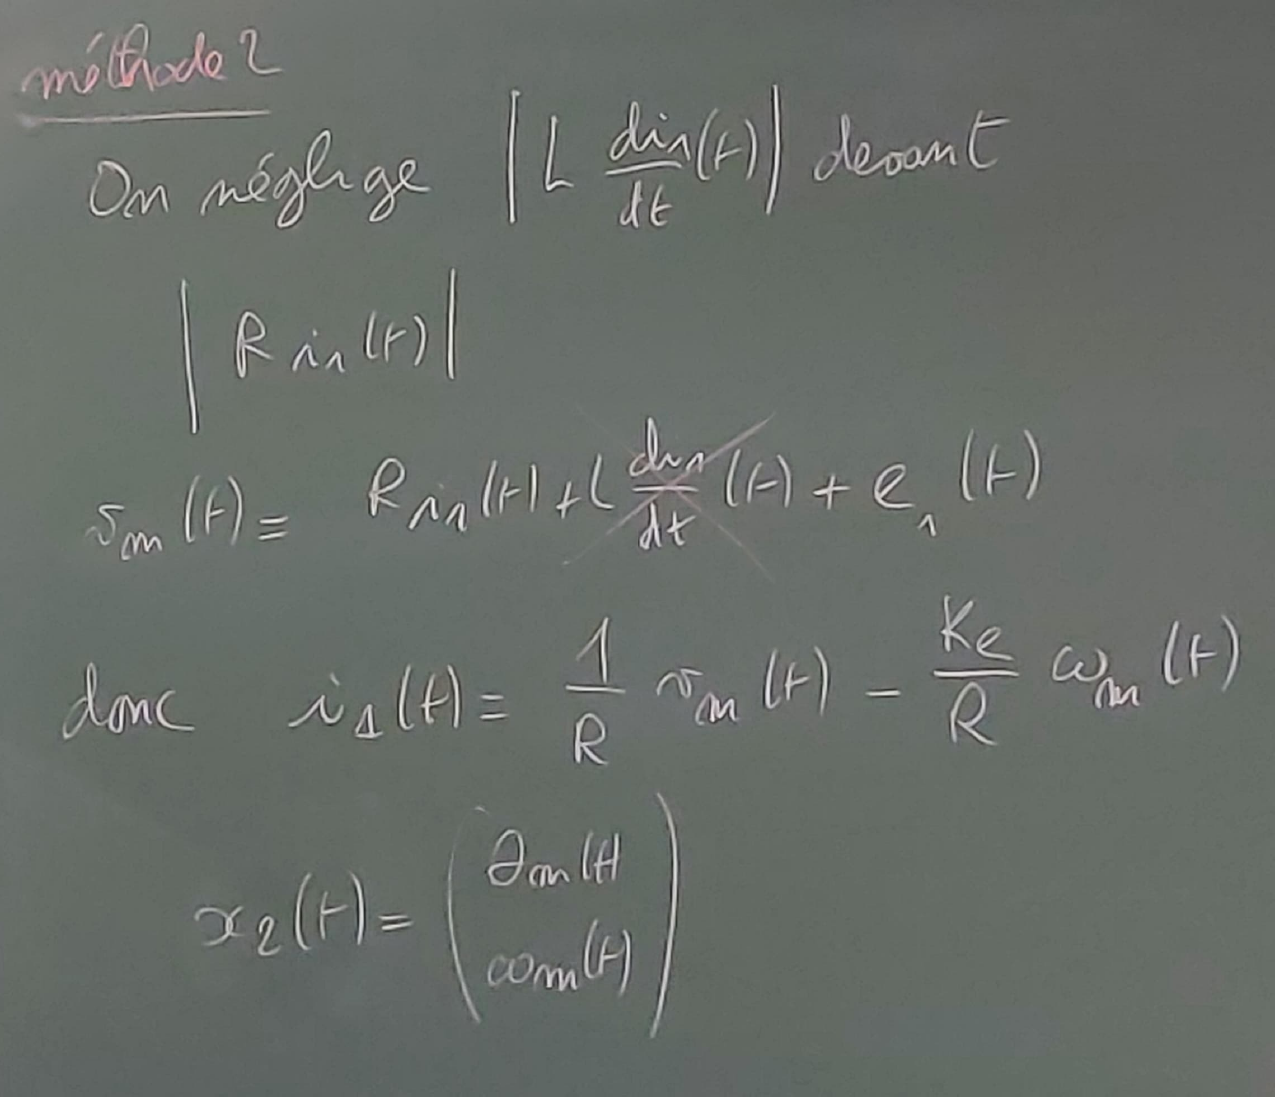 méthode 2
On néglige | L di₁(t)/dt | devant
| R i₁(t) |
v_m(t) = R i₁(t) + L di₁/dt (t) + e₁(t)
donc i₁(t) = 1/R v_m(t) - Ke/R ω_m(t)
x₂(t) = ( θ_m(t)
ω_m(t) )